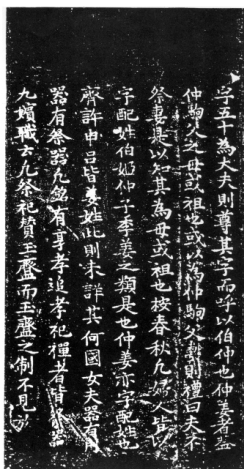 字五十為大夫則尊其字而呼以伯仲也仲姜者蓋
仲駒父之母或祖也或以為仲駒父妻則禮曰夫不
祭妻是以知其為母或祖也按春秋凡婦人皆以
字配姓伯姬仲子季姜之類是也仲姜亦字配姓也
齊許申呂皆姜姓此則未詳其何國女夫器有
器有祭器凡銘有享孝追孝祀禋者皆祭器
九嬪職云凡祭祀贊玉齍而玉齍之制不見